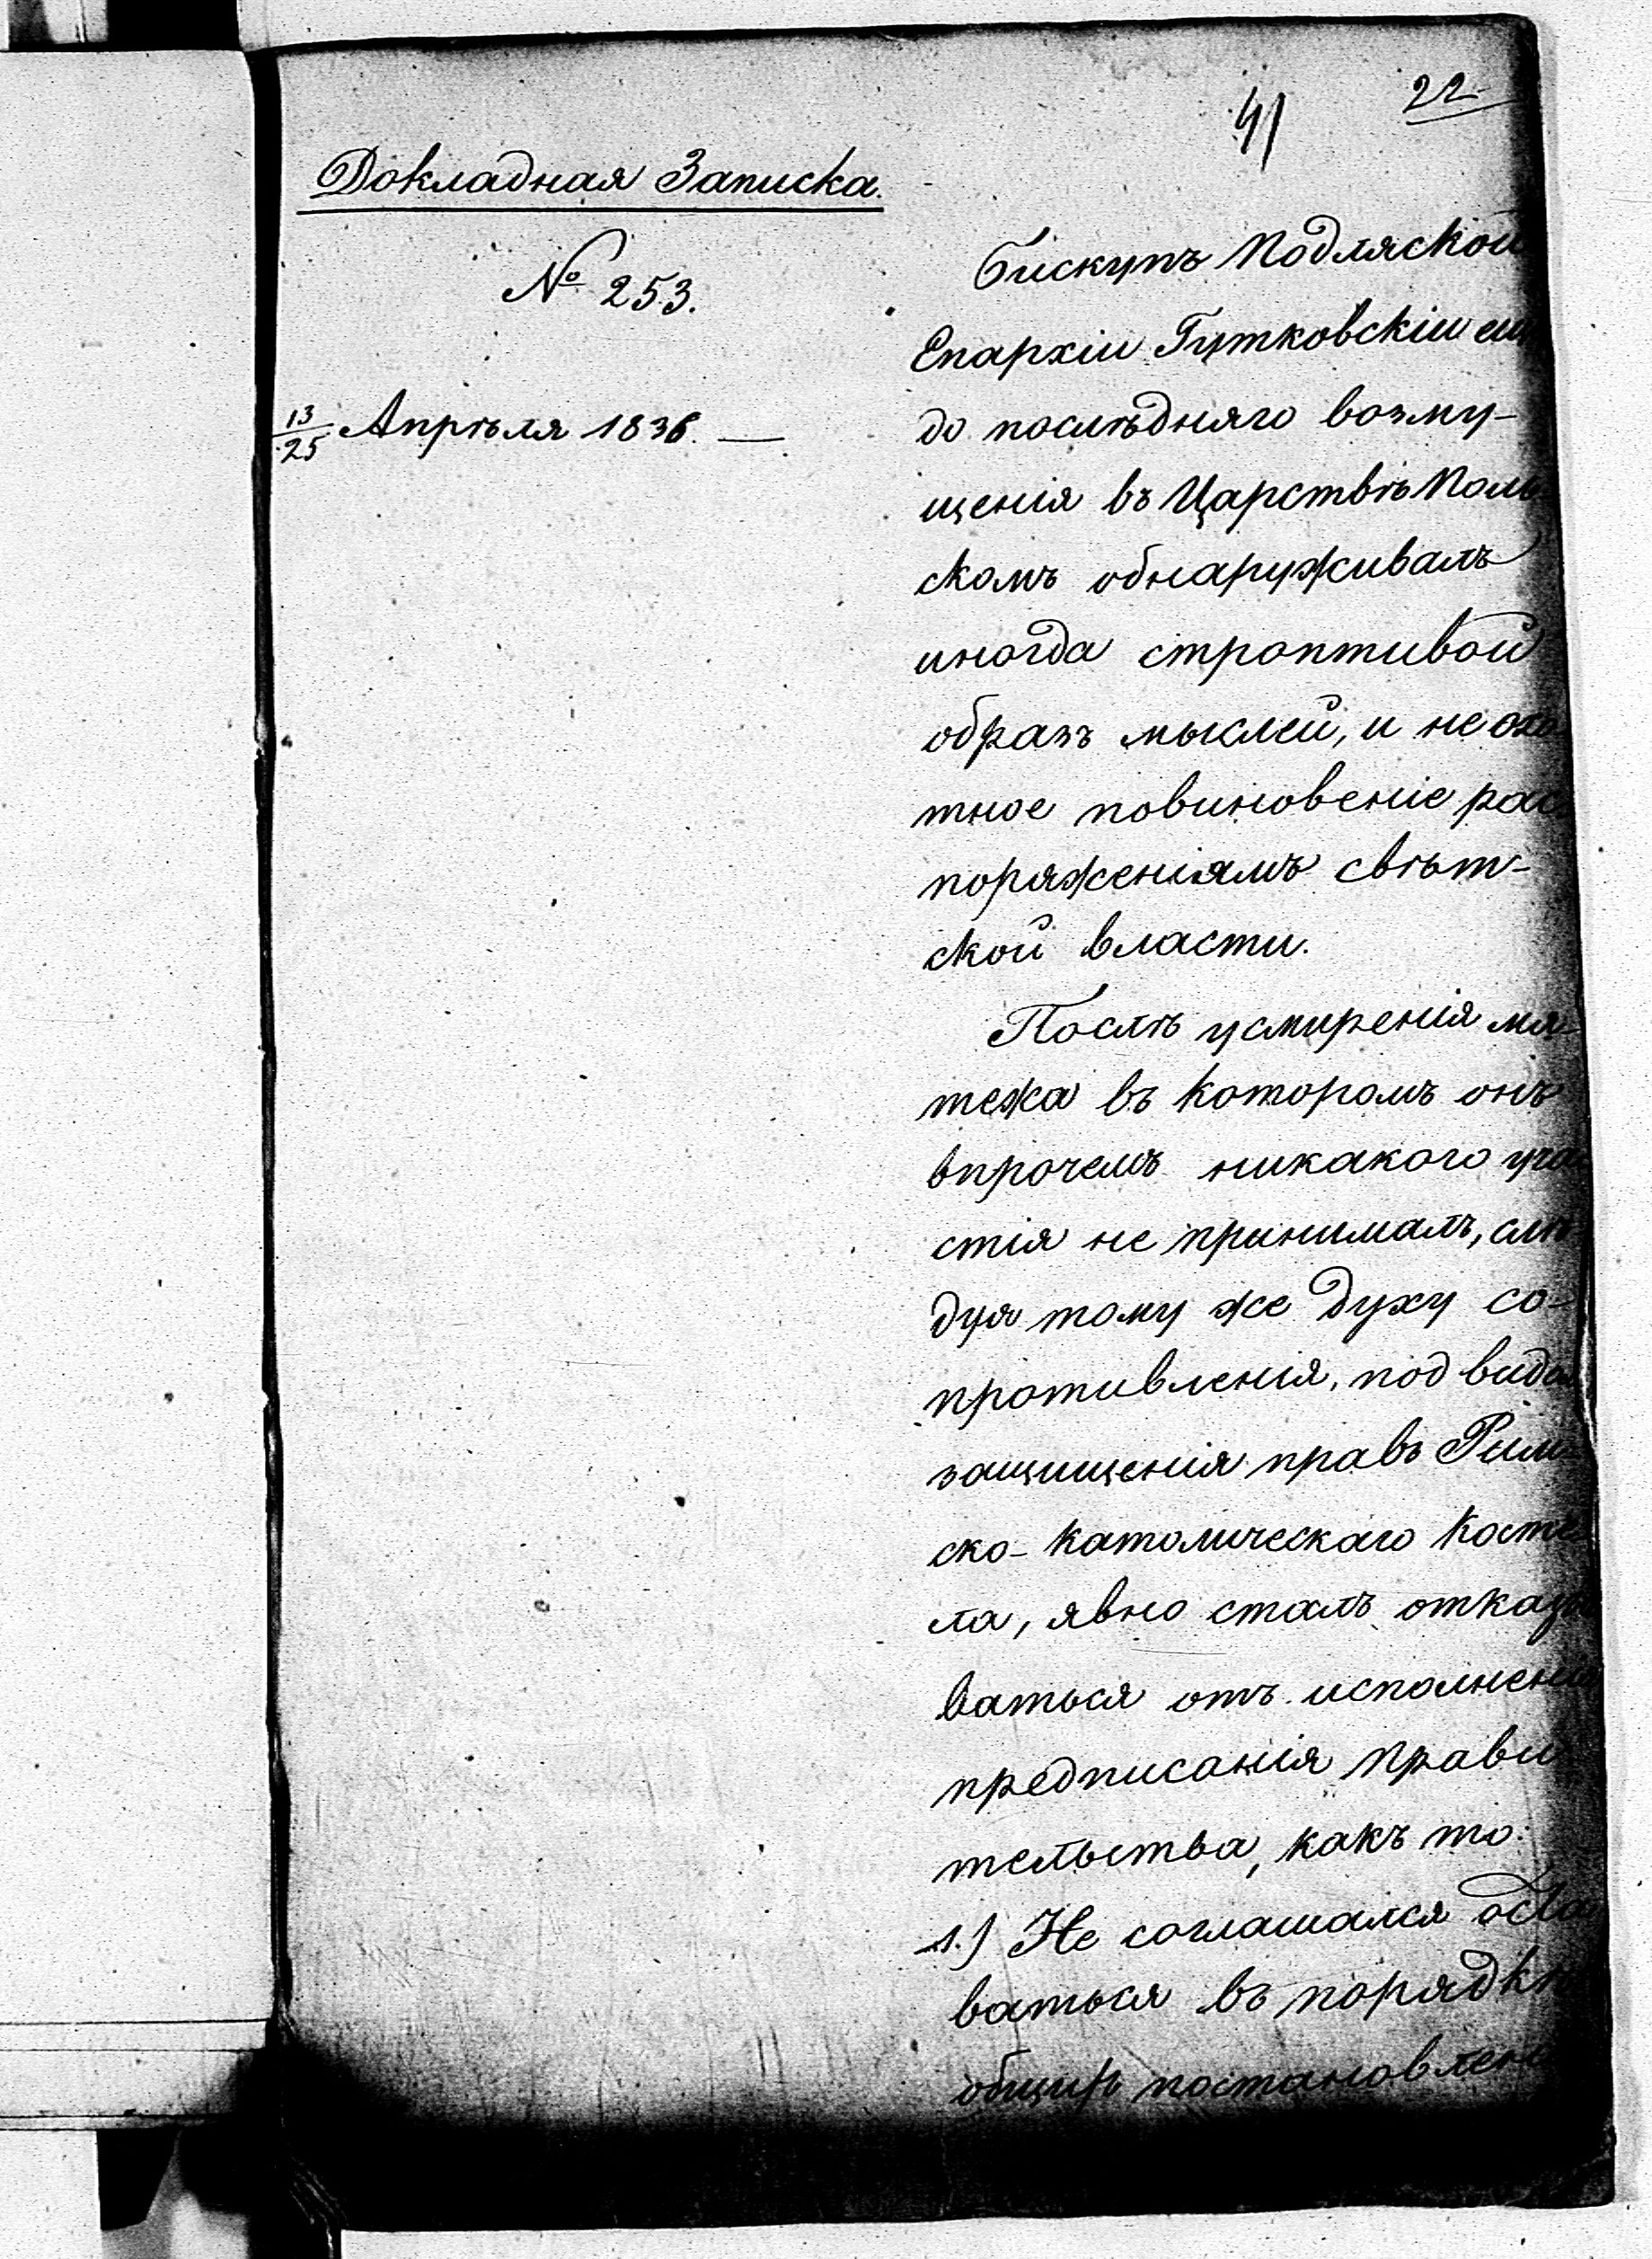 22
41
Докладная Записка.
№ 253.
13/25 Апрѣля 1836. —
Бискупъ Подляской
Епархіи Гутковскіи ещ
до послѣдняго возму-
щенія въ Царствѣ Поль
скомъ обнаруживалъ
иногда строптивой
образъ мыслей, и неохо
тное повиновеніе рас
поряженіямъ свѣт-
ской власти.
Послѣ усмиренія мя-
тежа въ которомъ онъ
впрочемъ никакого уча
стія не принималъ, слѣ
дуя тому же духу со-
противленія, под видо
защищенія правъ Рим-
ско-Католическаго Косте
ла, явно сталъ отказы
ваться отъ исполнені
предписанія Прави
тельства, какъ то:
1.) Не соглашался оста
ваться въ порядкѣ
общихъ постановлен